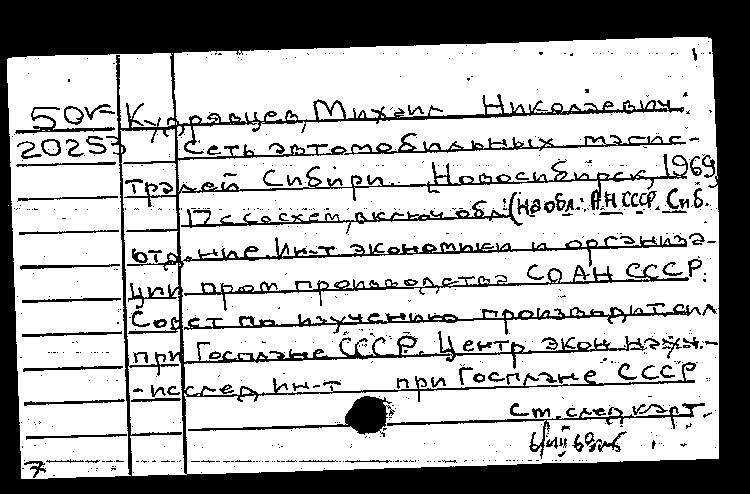 50к Кудрявцев, Михаил Николаевич.
20253 Сеть автомобильных магис-
тралей Сибири. [Новосибирск, 1969
17 с со схем, включ обл. (На обл.: АН СССР. Сиб.
отд-ние. Ин-т экономики и организа-
ции пром производства СОАН СССР.
Совет по изучению производит. сил
при Госплане СССР. Центр. экон научн.-
-исслед. ин-т при Госплане СССР
См. след карт.